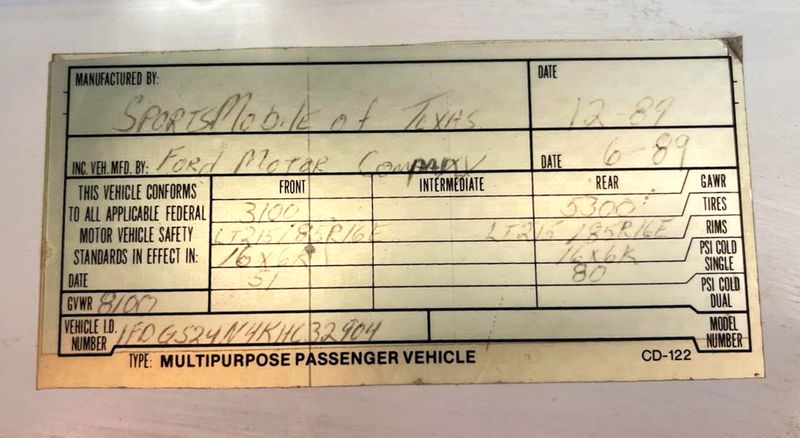 MANUFACTURED BY: DATE
SPORTSMOBILE of TEXAS 12-89
INC. VEH. MFD. BY: FORD MOTOR COMPANY DATE 6-89
THIS VEHICLE CONFORMS TO ALL APPLICABLE FEDERAL MOTOR VEHICLE SAFETY STANDARDS IN EFFECT IN:
DATE
FRONT INTERMEDIATE REAR GAWR
3100 5300 TIRES
LT215/85R16E LT215/85R16E RIMS
16x6K 16x6K PSI COLD SINGLE
51 80 PSI COLD DUAL
GVWR 8100
VEHICLE I.D. NUMBER 1FDGS24N4KHC32904 MODEL NUMBER
TYPE: MULTIPURPOSE PASSENGER VEHICLE CD-122